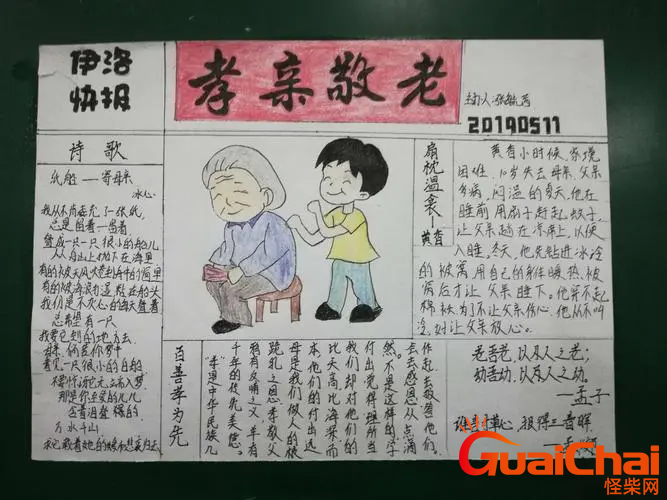 伊洛
快报
孝亲敬老
20190511
诗歌
纸船——寄母亲
冰心
我从不肯妄弃了一张纸,
总是留着——留着
叠成一只一只很小的船儿
从舟上抛下在海里
有的被天风吹卷到舟中的窗里
有的被海浪打湿,粘在船头
我仍是不灰心的每天叠着
总希望有一只
我要它到的地方去
母亲,倘若你梦中
看见一只很小的白船
不要惊讶它无端入梦
那是你至爱的儿
含着泪叠的
万水千山
求它载着她的爱和悲哀归去
扇枕温衾——黄香
黄香小时候,家境
困难,10岁失去母亲,父亲
多病。闷热的夏天,他在
睡前用扇子赶走蚊子,
让父亲躺在凉席上,以便
入睡。冬天,他先钻进冰冷
的被窝用自己的身体暖热被
窝后才让父亲睡下。他穿不起
棉袄,为了不让父亲伤心,他从不叫
冷,让父亲放心。
老吾老,以及人之老;
幼吾幼,以及人之幼。
——孟子
报得三春晖
百善孝为先
"孝"是中华民族几
千年的传统美德。
鸦有反哺之义,羊有
跪乳之恩,孝敬父
母是我们做人的根
本,他们的付出远
比天高比海深,而
我们却对他们的
付出觉得理所当
然,不是这样的,学
会去感恩,从点滴
作起,去敬爱他们。
GuaiChai
怪柴网